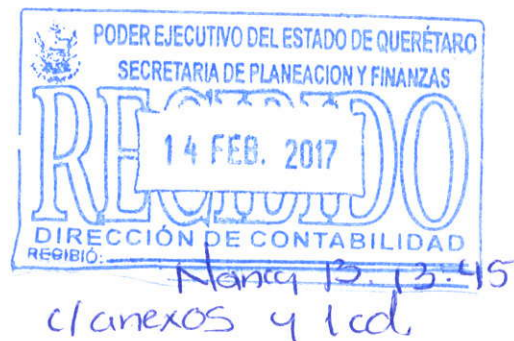 PODER EJECUTIVO DEL ESTADO DE QUERÉTARO
SECRETARIA DE PLANEACION Y FINANZAS
RECIBIDO
14 FEB. 2017
DIRECCIÓN DE CONTABILIDAD
RECIBIÓ: Nancy B. 13:45
c/anexos y 1cd